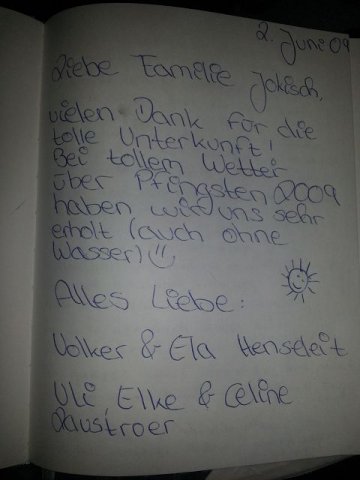 2. June 09
Liebe Familie Jokisch,
vielen Dank für die
tolle Unterkunft!
Bei tollem Wetter
über Pfingsten 2009
haben wir uns sehr
erholt (auch ohne
Wasser)
Alles Liebe:
Volker & Ela Henseleit
Uli, Elke & Celine
Daustroer